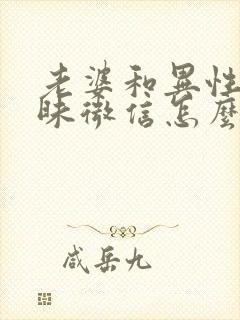 老婆和异性
昧微信怎麼
咸岳九